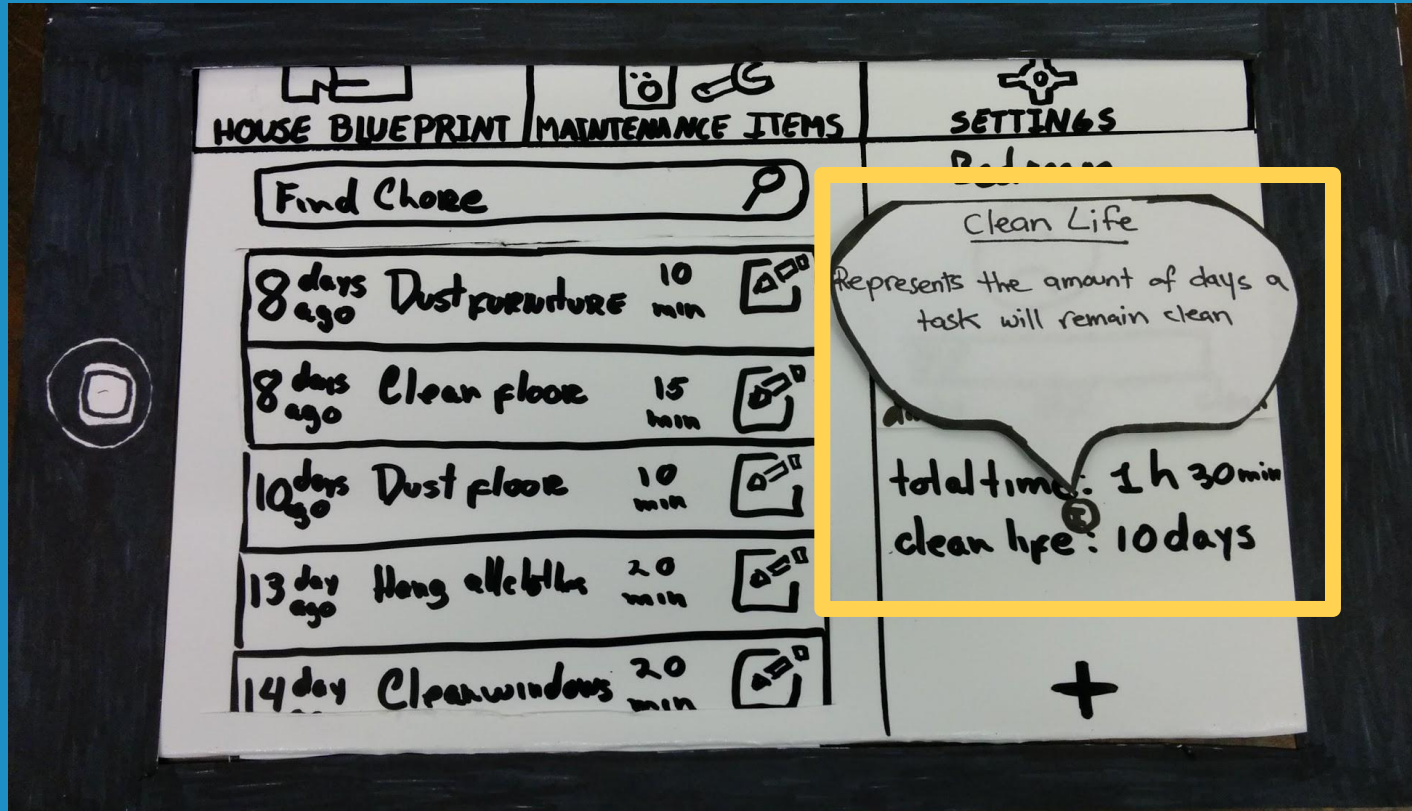 HOUSE BLUEPRINT
MAINTENANCE ITEMS
SETTINGS
Find Chore
8 days ago Dust furniture 10 min
8 days ago Clean floor 15 min
10 days ago Dust floor 10 min
13 day ago Hang all clothes 20 min
14 day Clean windows 20 min
Bedroom
Clean Life
Represents the amount of days a
task will remain clean
total time: 1 h 30 min
clean life: 10 days
+